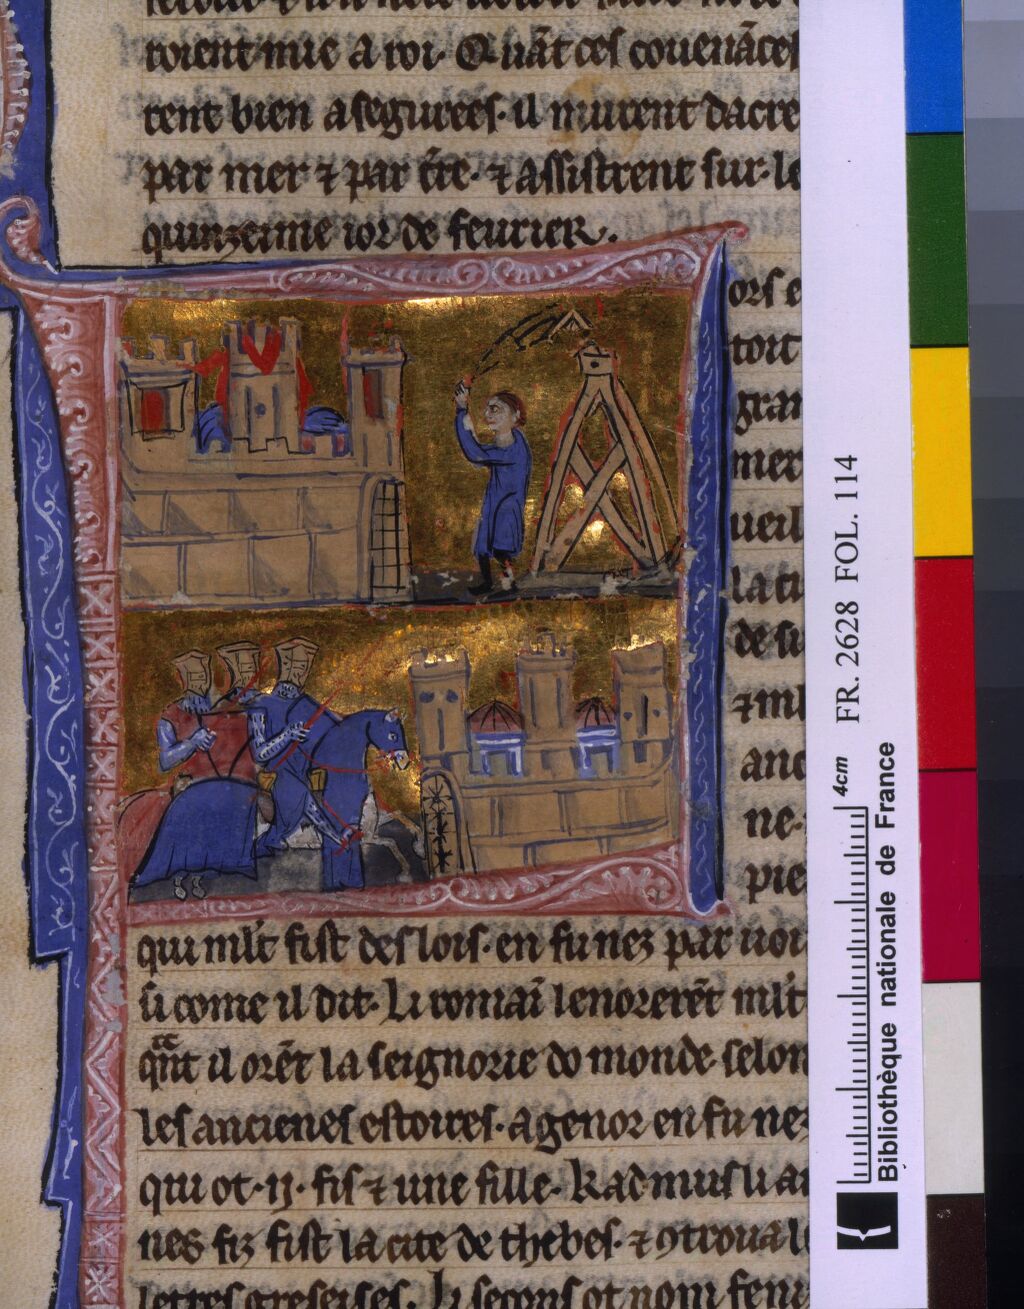 roient mie a roi. Quãt ces couenãces
rent bien asegurees. il murent dacre
par mer ⁊ par t̃re. ⁊ assistrent sur. le
quinzeime ior de feurier.
ors e
toit
gran
mer
ueil
la ci
de su
⁊ ml
anc
ne.
pie
qui ml̃t fist des lois. en fu nez par uoi
si come il dit. Li romaĩ lenorerẽt ml̃t
q̃nt il orẽt la seignorie do monde selon
les ancienes estoires. agenor en fu nez
qui ot .ij. fis ⁊ une fille. Kadmus li ai
nes fiz fist la cite de thebes. ⁊ 9troua l
lettres greseises. Li secons ot nom feni
FR. 2628 FOL. 114
4cm
Bibliothèque nationale de France